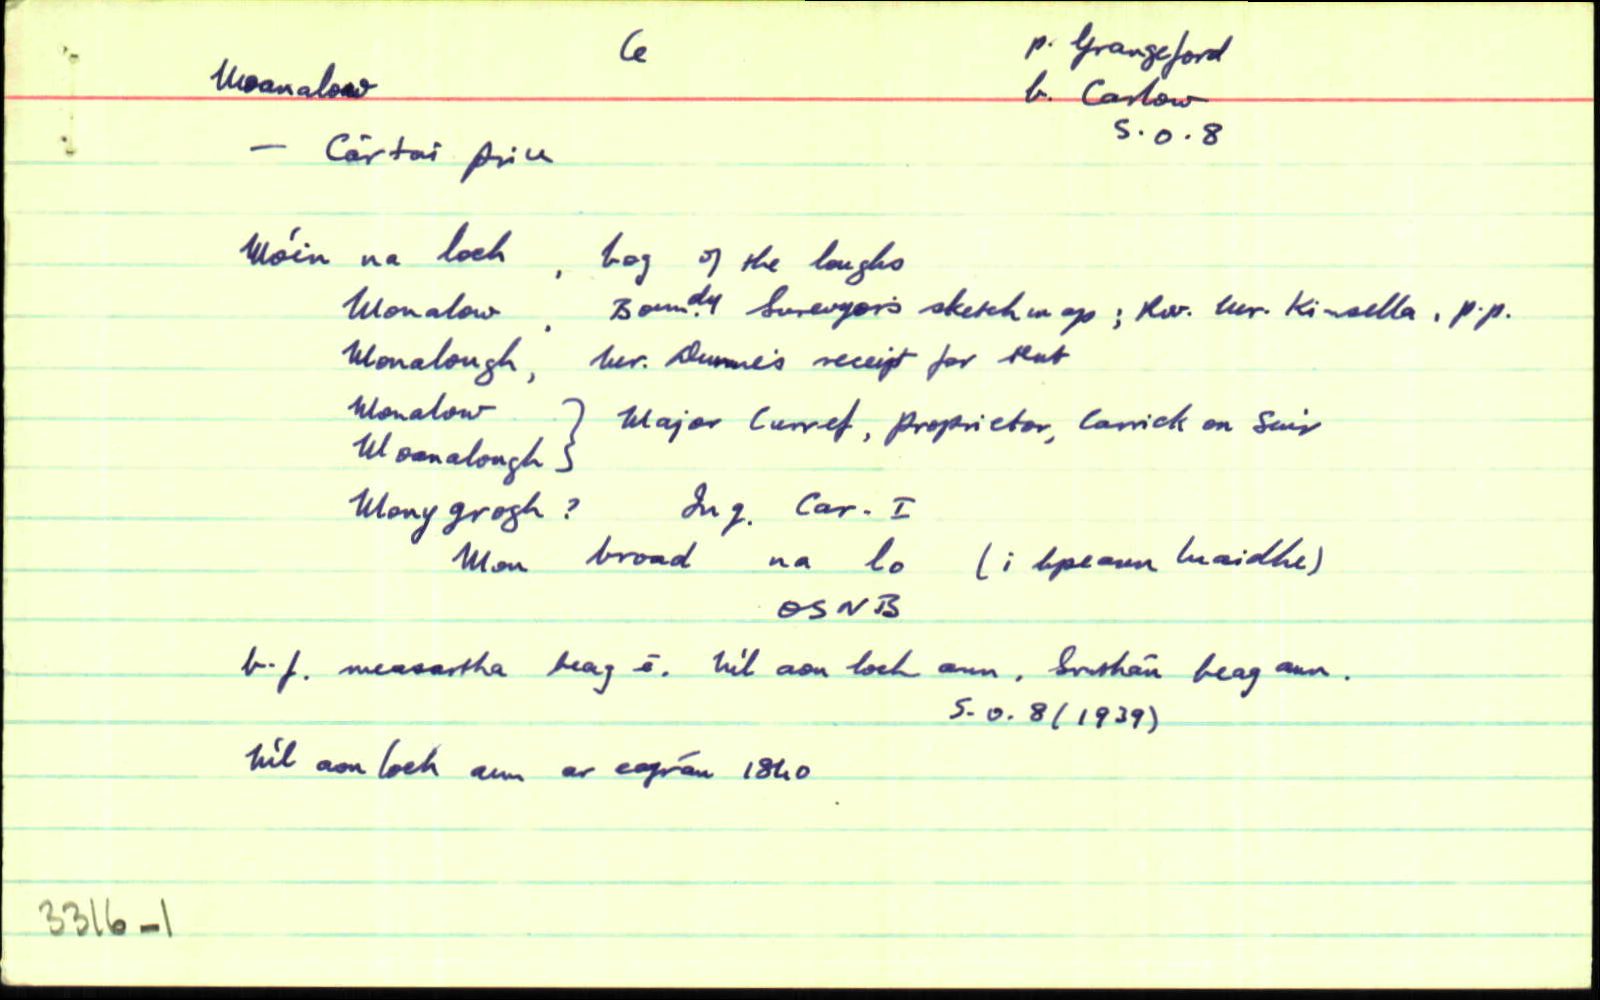 Ce
p. Grangeford
Moanalow
b. Carlow
S.O.8
— Cártaí Price
Móin na loch, bog of the loughs
Monalow, Boundy Surveyor's sketch map; Rev. Mr. Kinsella, p.p.
Monalough, Mr. Dunne's receipt for rent
Monalow
Moanalough } Major Currey, proprietor, Carrick on Suir
Monygrogh? Inq. Car. I
Mon broad na lo (i bpeann luaidhe)
OSNB
b.f. measartha beag é. Níl aon loch ann. Sruthán beag ann.
S.O.8 (1939)
Níl aon loch ann ar eagrán 1840
3316-1